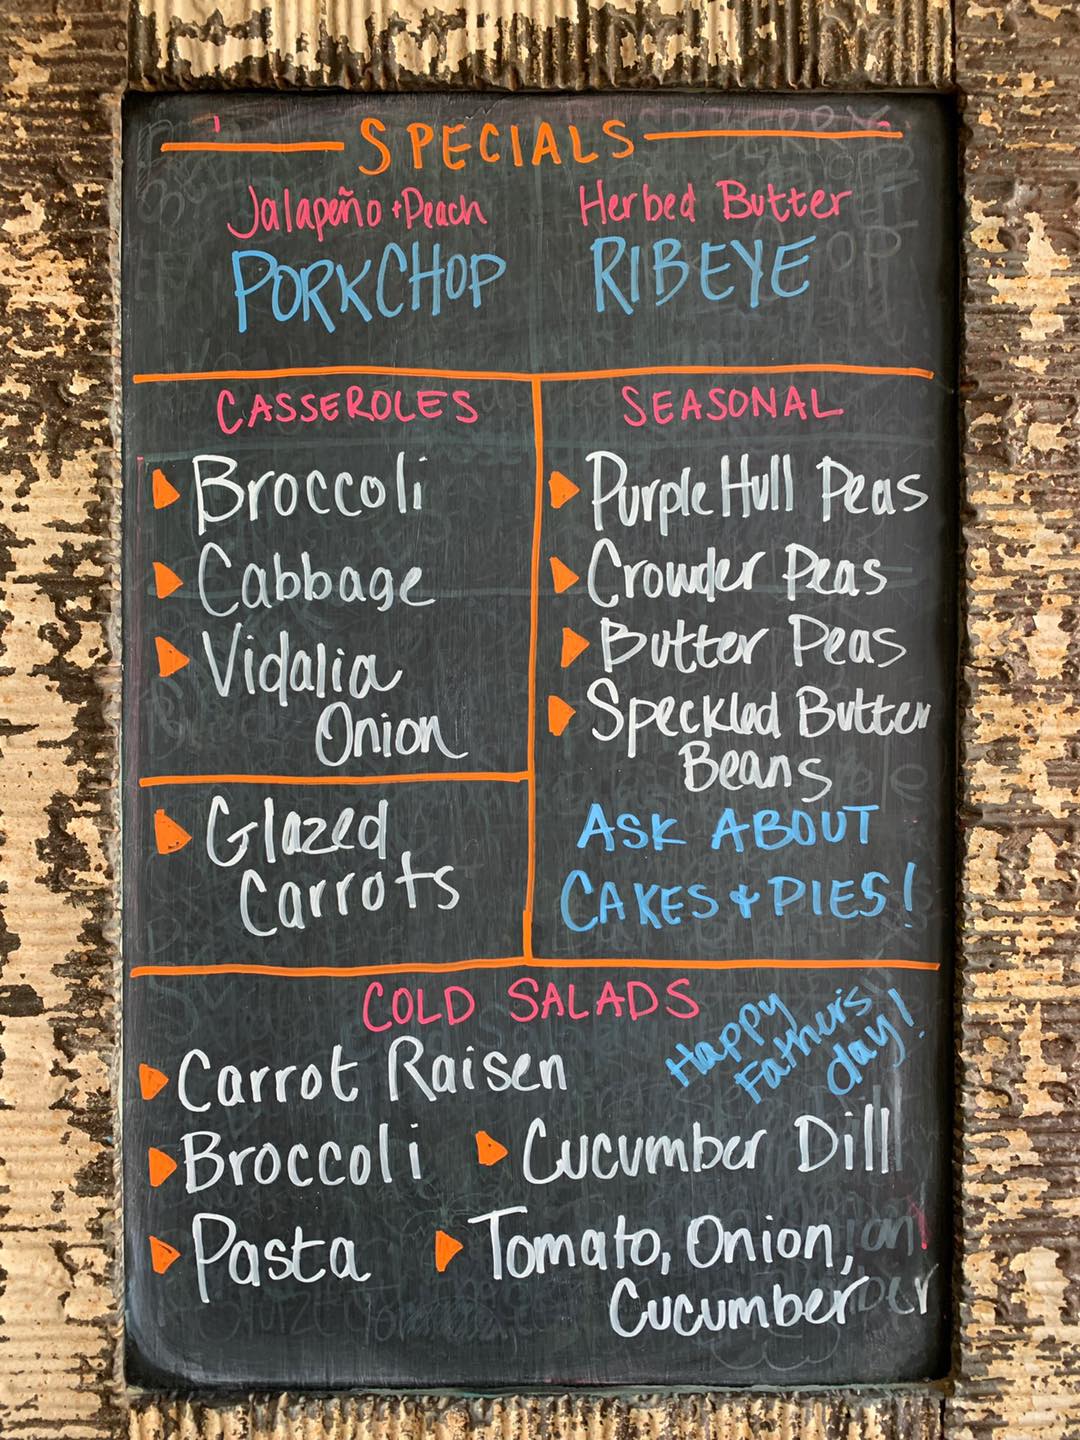 SPECIALS
Jalapeño + Peach
PORKCHOP
Herbed Butter
RIBEYE
CASSEROLES
Broccoli
Cabbage
Vidalia
Onion
Glazed
Carrots
SEASONAL
Purple Hull Peas
Crowder Peas
Butter Peas
Speckled Butter
Beans
ASK ABOUT
CAKES + PIES!
COLD SALADS
Happy
Father's
day!
Carrot Raisen
Broccoli
Cucumber Dill
Pasta
Tomato, Onion,
Cucumber